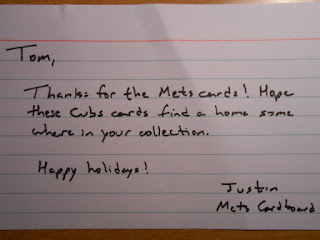 Tom,
Thanks for the Mets cards! Hope
these Cubs cards find a home some
where in your collection.
Happy holidays!
Justin
Mets Cardboard